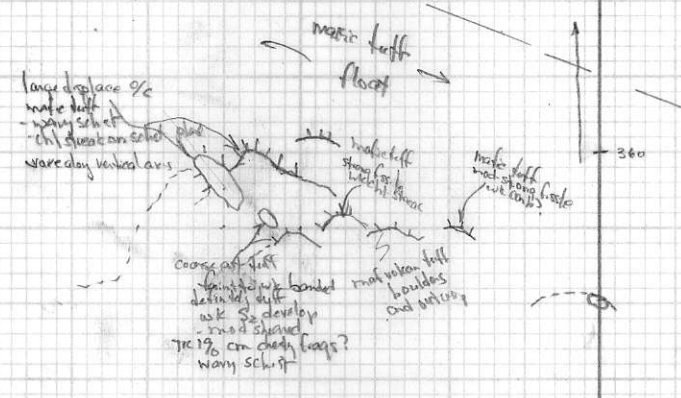 mafic tuff
float
large displace o/c
mafic tuff
- wavy schist
- chl streak on schist plane
wave along vertical axis
mafic tuff
strong fissile
mafic tuff
mod-strong fissile
360
coarse ash tuff
banded
definitely tuff
wk S2 develop
- mod sheared
1% cm cherty frags?
wavy schist
maf volcan tuff
boulders
and outcrop